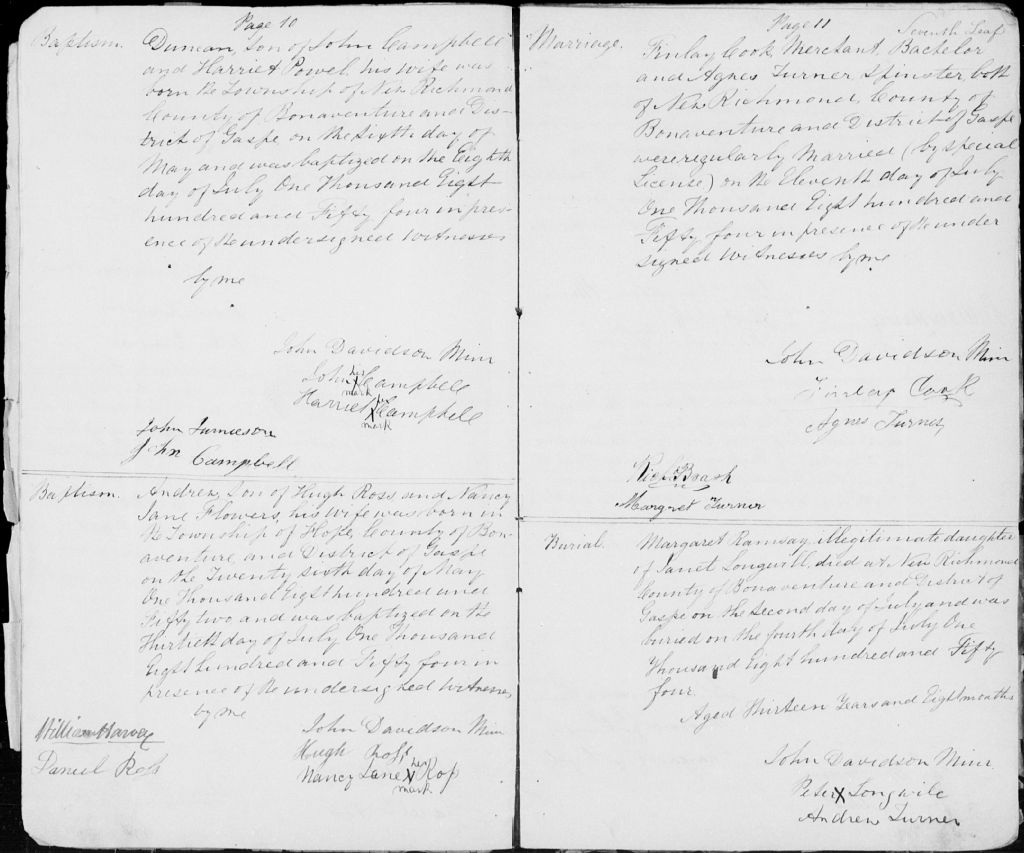 Page 10
Baptism. Duncan, Son of John Campbell
and Harriet Powel, his wife was
born the Township of New Richmond
County of Bonaventure and Dis-
trict of Gaspe on the Sixth day of
May and was baptized on the Eighth
day of July One Thousand Eight
hundred and Fifty four in pres-
ence of the undersigned Witnesses
by me
John Davidson Minr
John his Campbell
mark
Harriet X her Campbell
mark
John Jamieson
John Campbell
Baptism. Andrew, Son of Hugh Ross and Nancy
Jane Flowers, his wife was born in
the Township of Hope, County of Bon-
aventure, and District of Gaspe
on the Twenty sixth day of May
One Thousand Eight hundred and
Fifty two and was baptized on the
Thirtieth day of July One Thousand
Eight hundred and Fifty four in
presence of the undersigned Witnesses,
by me
John Davidson Minr
Hugh Ross
Nancy Jane X her Ross
mark
William
Daniel Ross
Page 11
Seventh Leaf
Marriage. Finlay Cook, Merchant, Bachelor
and Agnes Turner, Spinster, both
of New Richmond, County of
Bonaventure and District of Gaspe
were regularly Married (by Special
License) on the Eleventh day of July
One Thousand Eight hundred and
Fifty four in presence of the under
signed Witnesses by me
John Davidson Minr
Finlay Cook
Agnes Turner
Brash
Margret Turner
Burial. Margaret Ramsay, illegitimate daughter
of Janet Longwill, died at New Richmond
County of Bonaventure and District of
Gaspe on the second day of July and was
buried on the fourth day of July One
Thousand Eight hundred and Fifty
four.
Aged Thirteen Years and Eight months
John Davidson Minr
Peter X Longwile
Andrew Turner